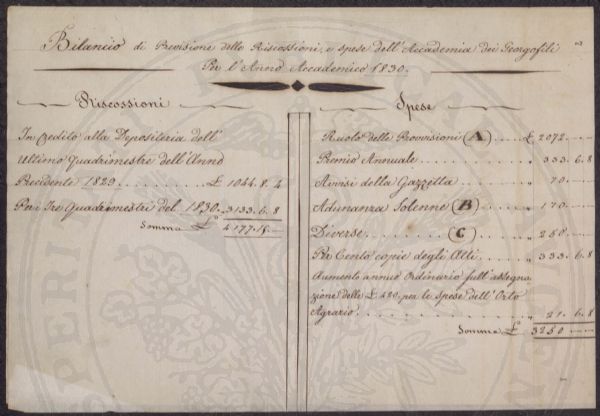 Bilancio di Previsione delle Riscossioni, e spese dell'Accademia dei Georgofili
Per l'Anno Accademico 1830.
Riscossioni
In credito alla Depositeria dell'
Ultimo Quadrimestre dell'Anno
Precedente 1829 £ 1044. 8. 4
Per Tre Quadrimestri del 1830. 3133. 6. 8
Somma £ 4177. 15. —
Spese
Ruolo delle Provvisioni (A) £ 2072. —
Premio Annuale " 333. 6. 8
Avvisi della Gazzetta " 70. —
Adunanza Solenne (B) " 170. —
Diverse (C) " 250. —
Per Cento copie degli Atti " 333. 6. 8
Aumento annuo Ordinario sull'assegna
zione delle £ 420. per le spese dell'Orto
Agrario " 21. 6. 8
Somma £ 3250. —